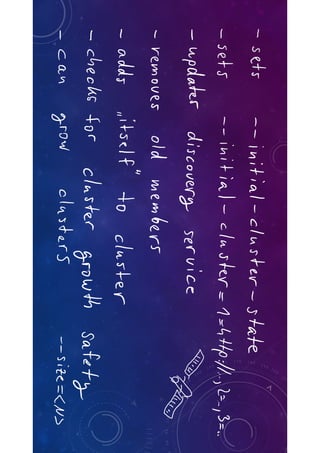 - sets --initial-cluster-state
- sets --initial-cluster=1=http://..,2=..,3=..
- updates discovery service
- removes old members
- adds „itself" to cluster
- checks for cluster growth safety
- can grow clusters --size=<N>